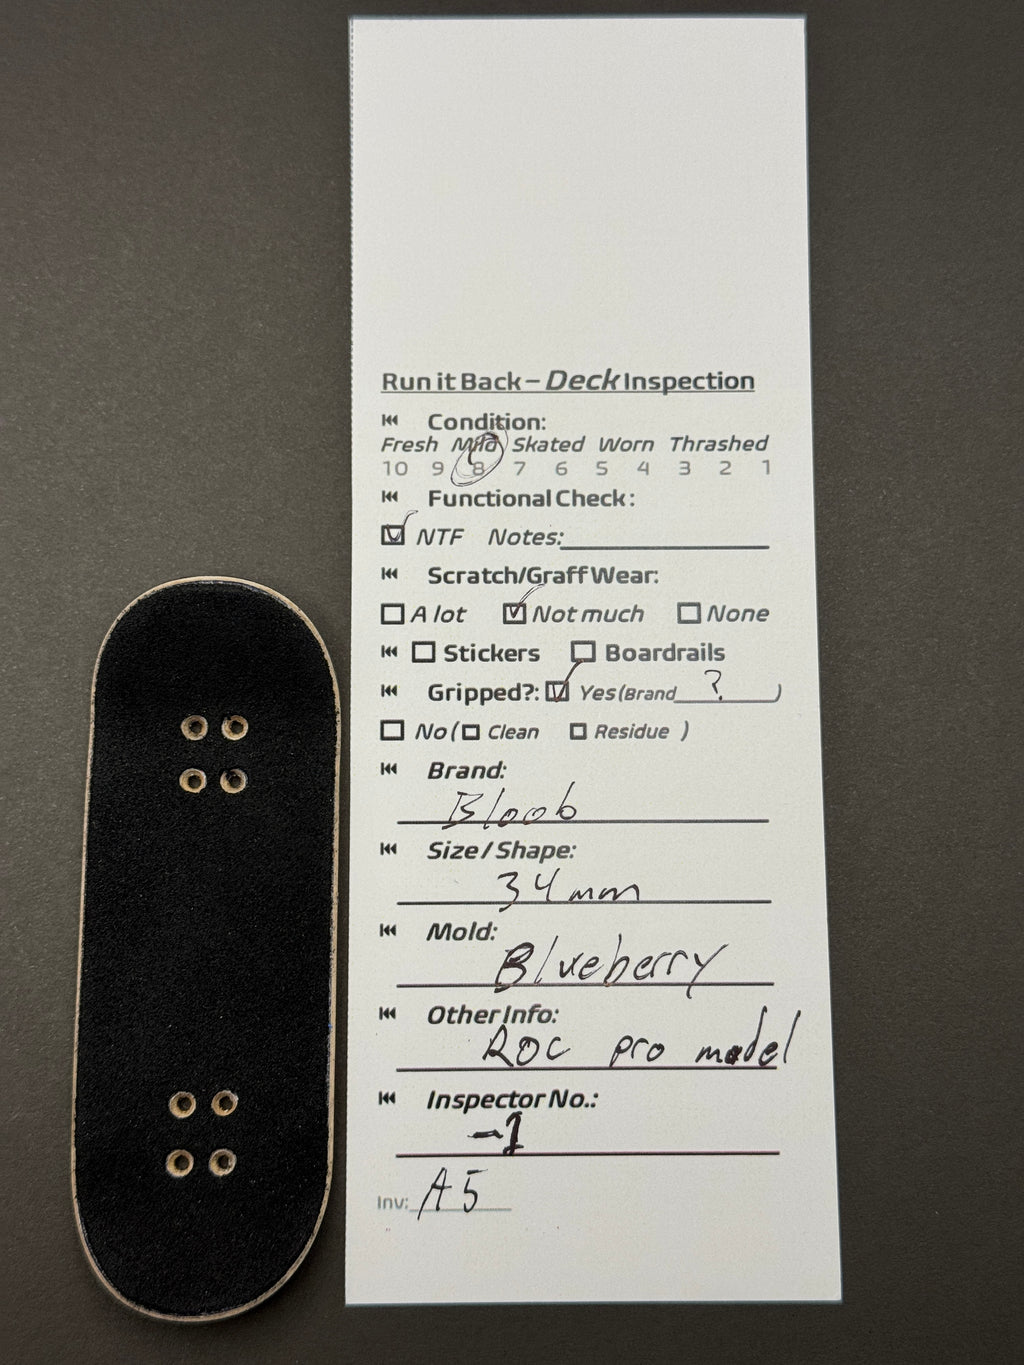 Run it Back – Deck Inspection
Condition:
Fresh Mild Skated Worn Thrashed
10 9 8 7 6 5 4 3 2 1
Functional Check:
NTF Notes:
Scratch/Graff Wear:
A lot Not much None
Stickers Boardrails
Gripped?: Yes (Brand ? )
No ( Clean Residue )
Brand:
Bloob
Size / Shape:
34mm
Mold:
Blueberry
Other Info:
ROC pro model
Inspector No.:
-1
Inv: A5